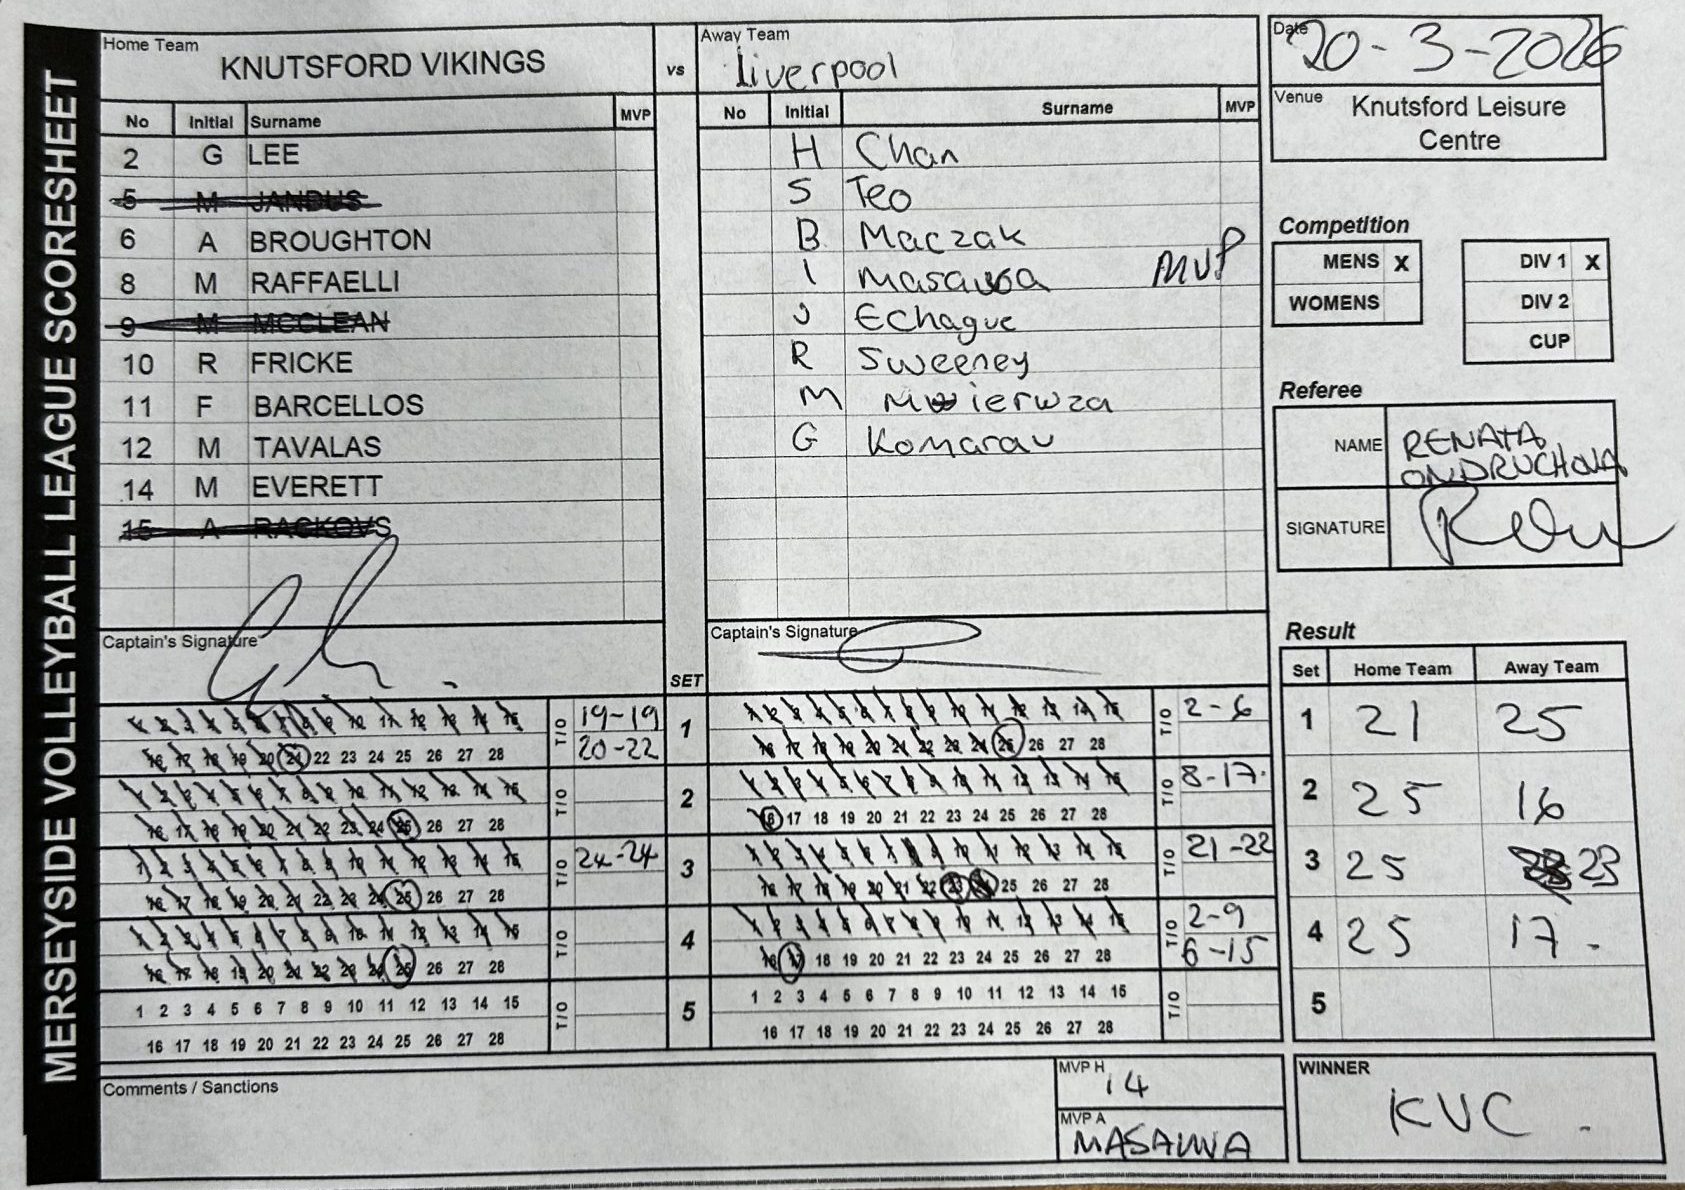 MERSEYSIDE VOLLEYBALL LEAGUE SCORESHEET
Home Team
KNUTSFORD VIKINGS
vs
Away Team
Liverpool
Date
20-3-2026
Venue Knutsford Leisure
Centre
No Initial Surname MVP
2 G LEE
5 M JANDUS
6 A BROUGHTON
8 M RAFFAELLI
9 M MCCLEAN
10 R FRICKE
11 F BARCELLOS
12 M TAVALAS
14 M EVERETT
15 A RACKOVS
Captain's Signature
No Initial Surname MVP
H Chan
S Teo
B Maczak
I MVP
J Echague
R Sweeney
M
G Komarau
Captain's Signature
Competition
MENS X
WOMENS
DIV 1 X
DIV 2
CUP
Referee
NAME RENATA
ONDRUCHOVA
SIGNATURE
SET
1 2 3 4 5 6 7 8 9 10 11 12 13 14 15
16 17 18 19 20 21 22 23 24 25 26 27 28
T/O 19-19
20-22
1
1 2 3 4 5 6 7 8 9 10 11 12 13 14 15
16 17 18 19 20 21 22 23 24 25 26 27 28
T/O 2-6
1 2 3 4 5 6 7 8 9 10 11 12 13 14 15
16 17 18 19 20 21 22 23 24 25 26 27 28
T/O
2
1 2 3 4 5 6 7 8 9 10 11 12 13 14 15
16 17 18 19 20 21 22 23 24 25 26 27 28
T/O 8-17.
1 2 3 4 5 6 7 8 9 10 11 12 13 14 15
16 17 18 19 20 21 22 23 24 25 26 27 28
T/O 24-24
3
1 2 3 4 5 6 7 8 9 10 11 12 13 14 15
16 17 18 19 20 21 22 23 24 25 26 27 28
T/O 21-22
1 2 3 4 5 6 7 8 9 10 11 12 13 14 15
16 17 18 19 20 21 22 23 24 25 26 27 28
T/O
4
1 2 3 4 5 6 7 8 9 10 11 12 13 14 15
16 17 18 19 20 21 22 23 24 25 26 27 28
T/O 2-9
6-15
1 2 3 4 5 6 7 8 9 10 11 12 13 14 15
16 17 18 19 20 21 22 23 24 25 26 27 28
T/O
5
1 2 3 4 5 6 7 8 9 10 11 12 13 14 15
16 17 18 19 20 21 22 23 24 25 26 27 28
T/O
Result
Set Home Team Away Team
1 21 25
2 25 16
3 25 23
4 25 17.
5
Comments / Sanctions
MVP H 14
MVP A
WINNER
KVC.